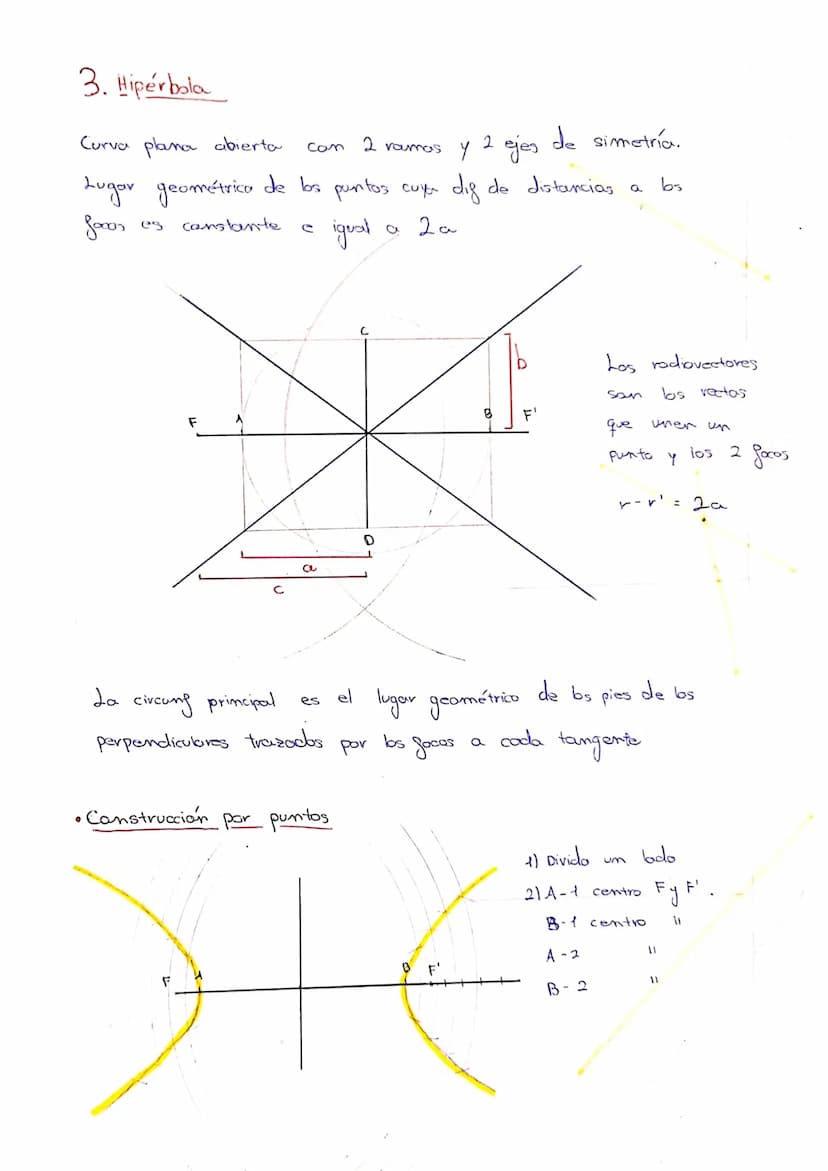 3. Hipérbola
Curva plana abierta con 2 ramas y 2 ejes de simetría.
Lugar geométrico de los puntos cuya dif de distancias a los
focos es constante e igual a 2a
C
b
F
A
B
F'
D
a
c
Los radiovectores
son las rectas
que unen un
punto y los 2 focos
r-r' = 2a
La circunf principal es el lugar geométrico de los pies de las
perpendiculares trazadas por los focos a cada tangente
• Construcción por puntos
1) Divido un lado
2) A-1 centro F y F'.
B-1 centro "
A-2 "
B-2 "
F
A
B
F'